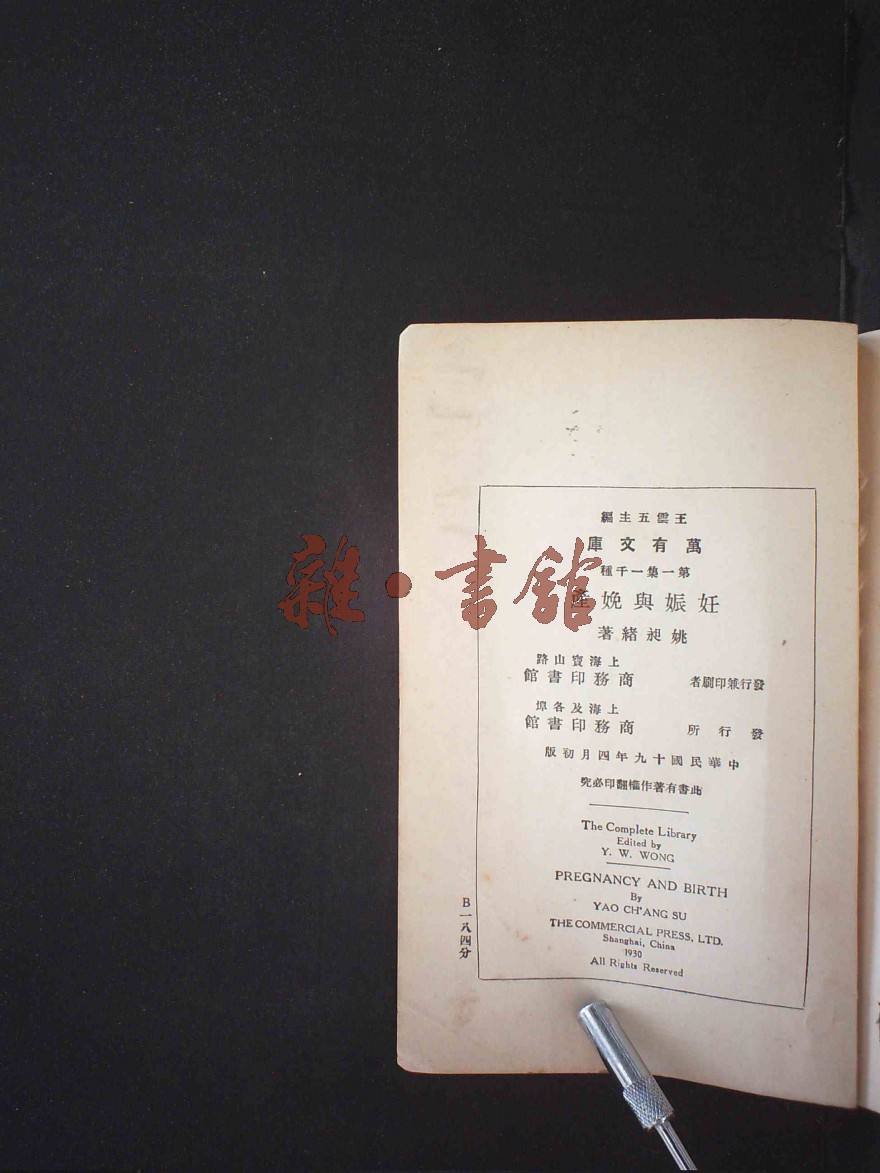 王雲五主編
萬有文庫
第一集一千種
妊娠與娩產
姚昶緒著
上海寶山路
發行兼印刷者 商務印書館
上海及各埠
發行所 商務印書館
中華民國十九年四月初版
此書有著作權翻印必究
The Complete Library
Edited by
Y. W. WONG
PREGNANCY AND BIRTH
By
YAO CH'ANG SU
THE COMMERCIAL PRESS, LTD.
Shanghai, China
1930
All Rights Reserved
B一八四分
雜·書館